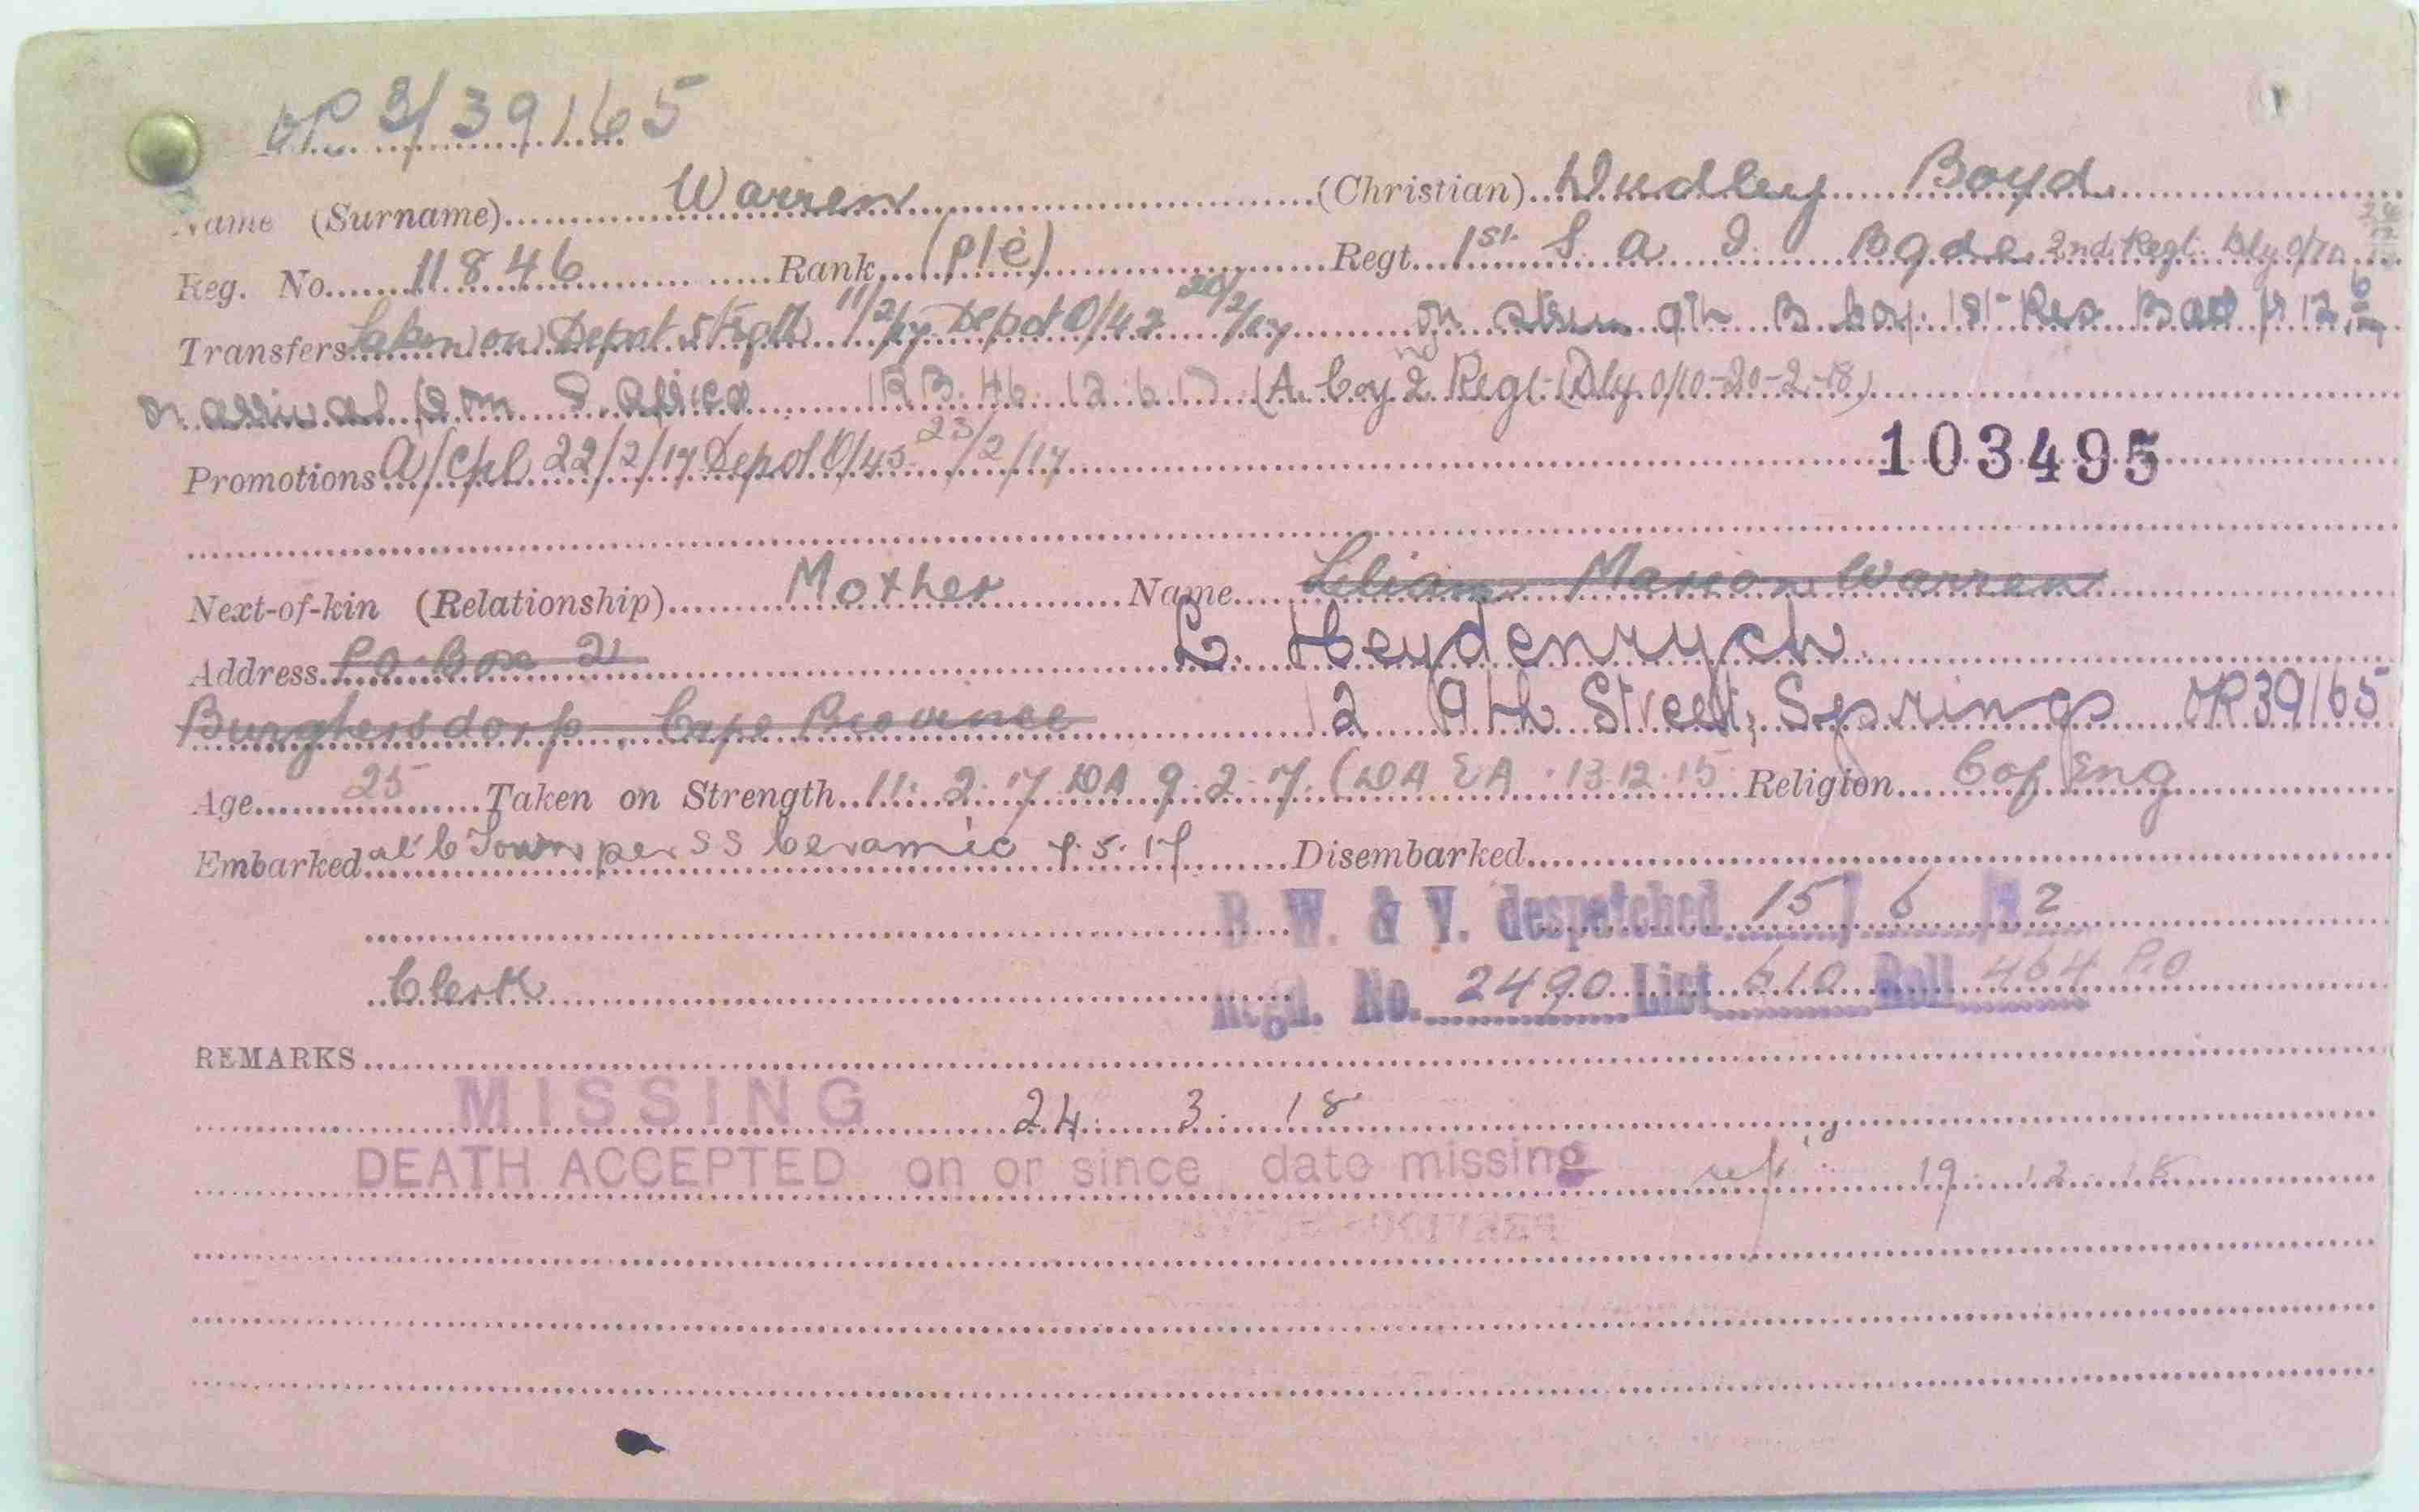 3/39165
Name (Surname) Warren (Christian) Dudley Boyd
Reg. No. 11846 Rank (pte) Regt. 1st. S. A. I. Bgde 2nd Regt. Dly O/
Transfers Taken on Depot strgth 11/2/17 Depot O/42 20/2/17 on 9th B Coy. 1st Res Batt 12
on arrival from S. Africa 1RB. 46. 12.6.17 (A. Coy 2nd Regt (Dly. O/10-20-2-18)
Promotions A/Cpl 22/2/17 Depot O/45 23/2/17 103495
Next-of-kin (Relationship) Mother Name Lilian Marion Warren
L. Heydenrych.
Address P.O. Box 21
Burghersdorp, Cape Province 12 9th Street, Springs 39165
Age 25 Taken on Strength 11. 2. 17 DA 9. 2. 17. (DA EA. 13.12.15 Religion C of Eng
Embarked at C Town per SS Ceramic 5. 17 Disembarked
B. W. & V. despatched 15/6/22
Clerk Regn. No. 2490 List 610 Roll 464 P.O
REMARKS
MISSING 24. 3. 18
DEATH ACCEPTED on or since date missing 19 12 18